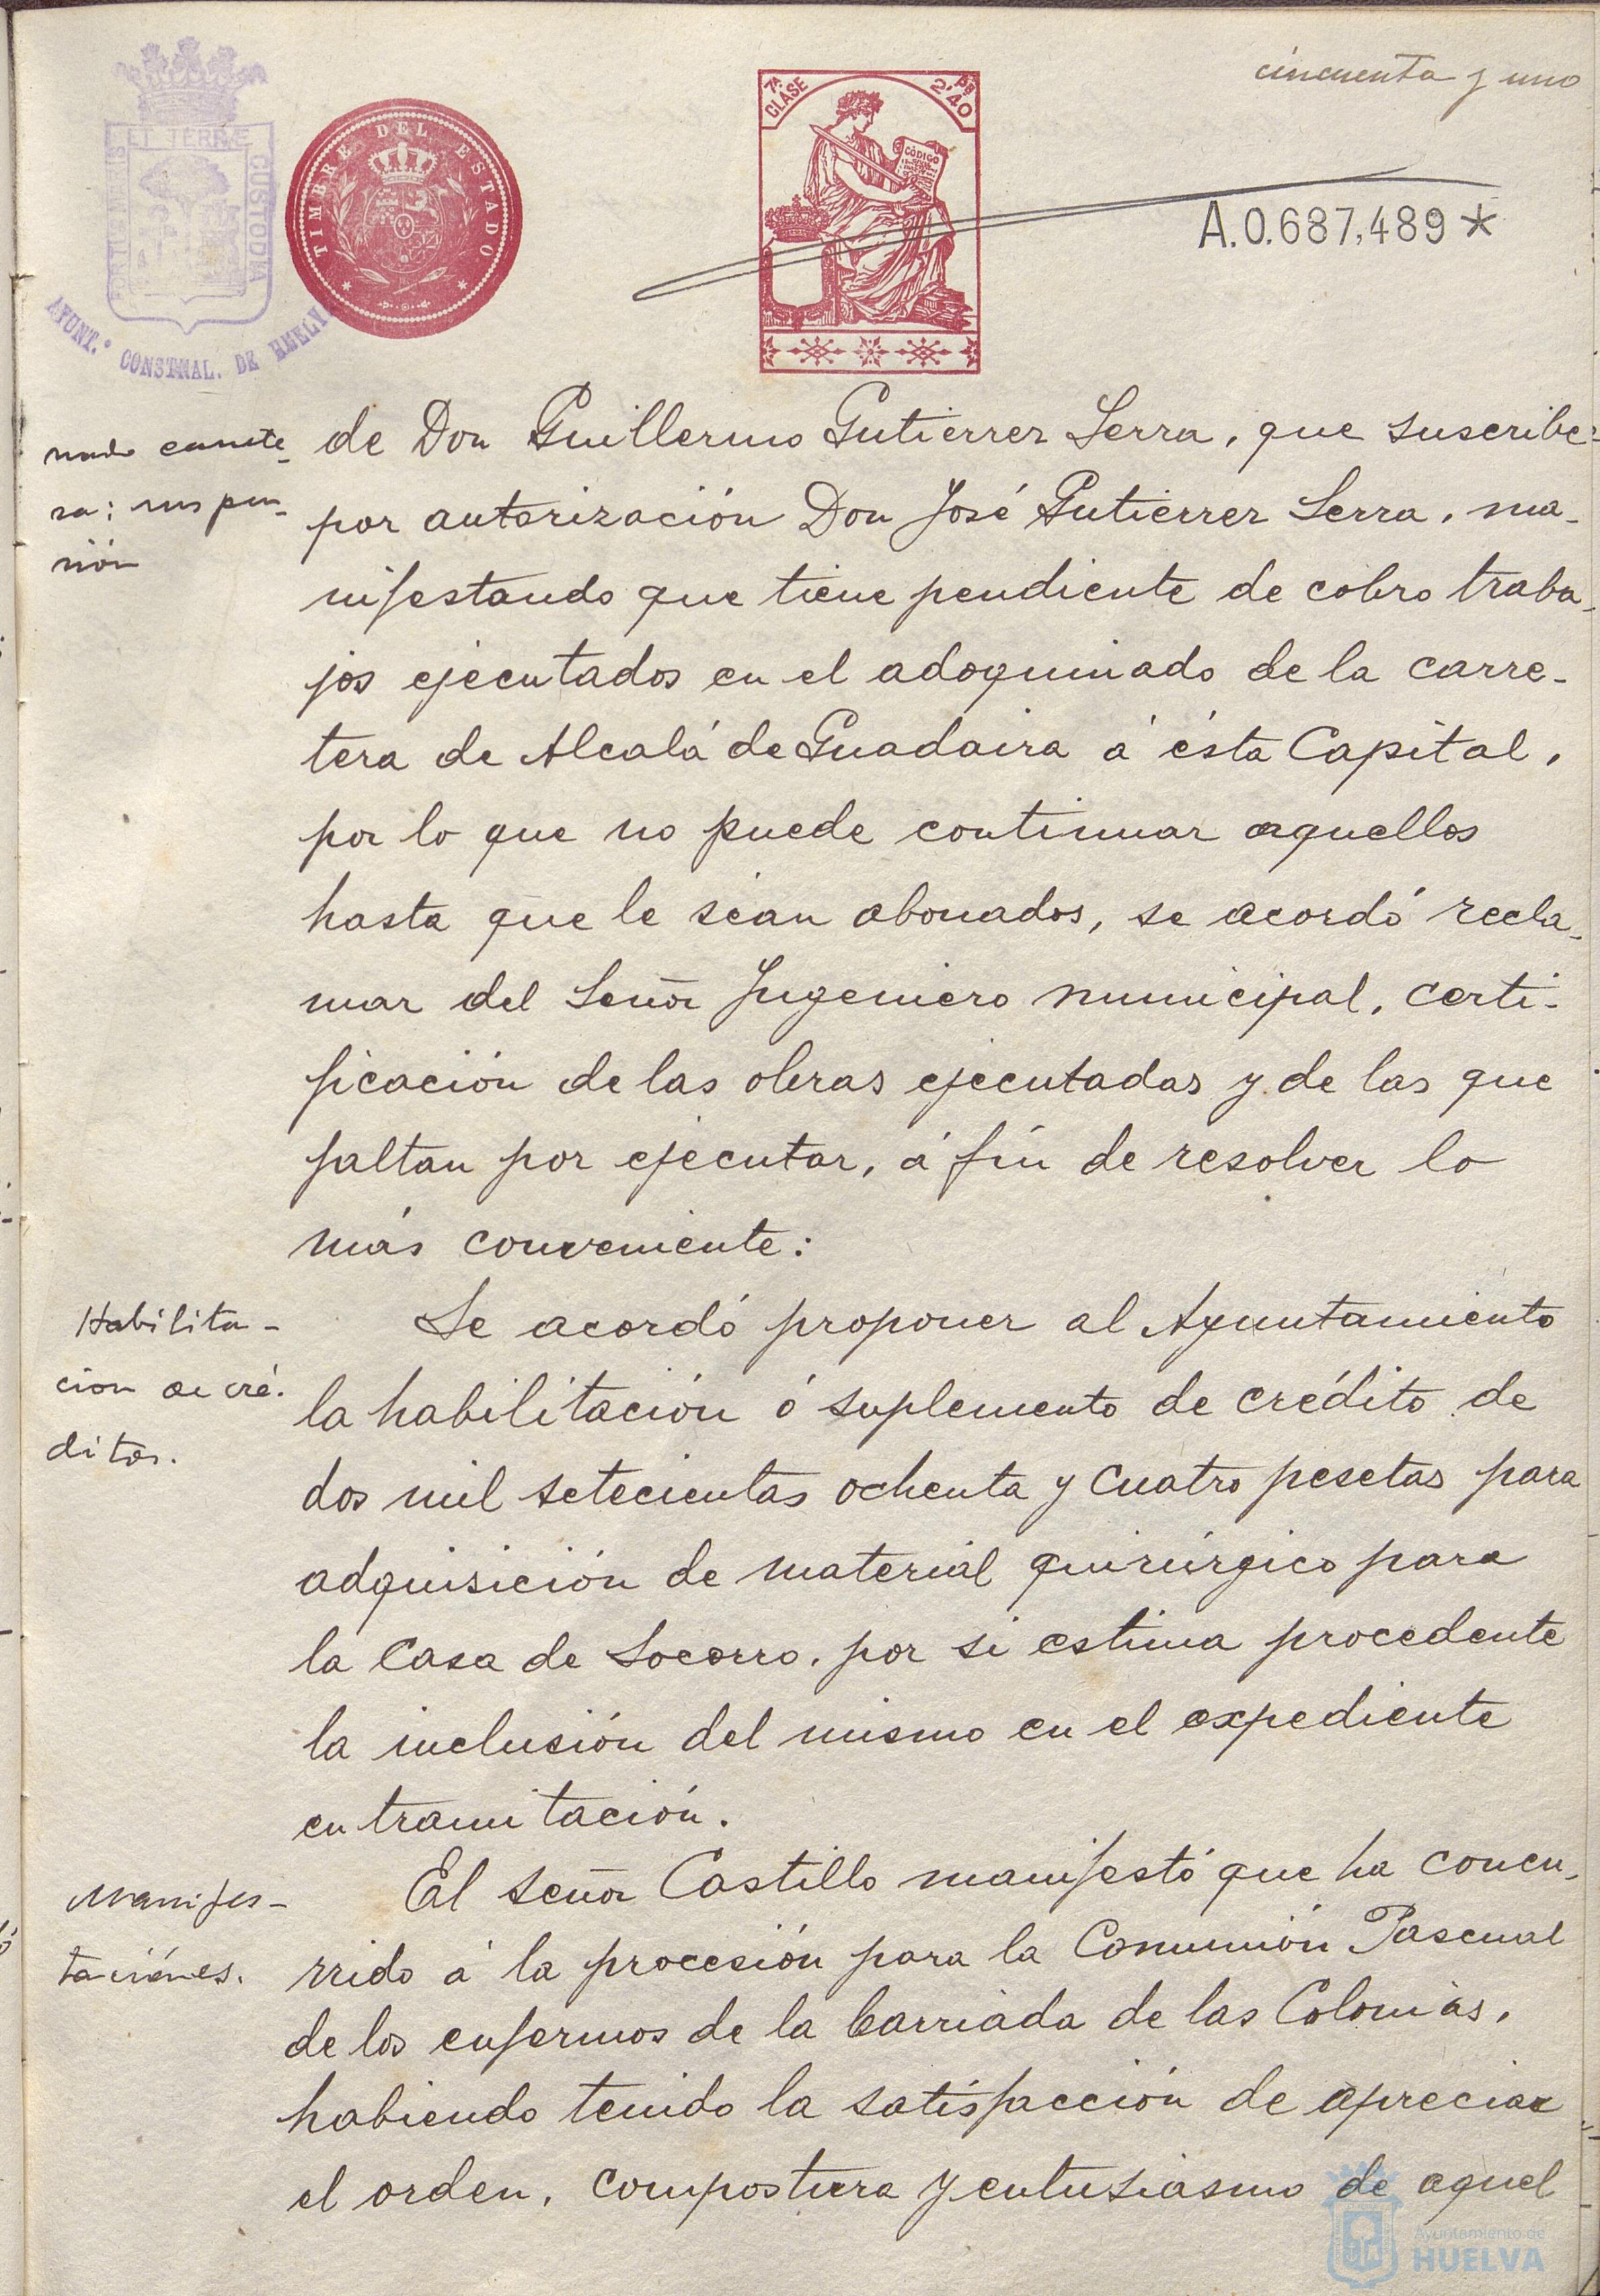 cincuenta y uno
PORTUS MARIS
ET TERRE
CUSTODIA
AYUNT.º CONSTNAL. DE HUELVA
TIMBRE DEL ESTADO
7ª CLASE
Pts 2'40
CÓDIGO
A.0.687,489*
nado carrete-
ra: suspen-
sión
de Don Guillermo Gutierrez Serra, que suscribe
por autorización Don José Gutierrez Serra, ma-
nifestando que tiene pendiente de cobro traba-
jos ejecutados en el adoquinado de la carre-
tera de Alcalá de Guadaira á ésta Capital,
por lo que no puede continuar aquellos
hasta que le sean abonados, se acordó recla-
mar del Señor Ingeniero municipal, certi-
ficación de las obras ejecutadas y de las que
faltan por ejecutar, á fín de resolver lo
más conveniente:
Habilita-
cion de cré-
ditos.
Se acordó proponer al Ayuntamiento
la habilitación ó suplemento de crédito de
dos mil setecientas ochenta y cuatro pesetas para
adquisición de material quirúrgico para
la Casa de Socorro, por si estima procedente
la inclusión del mismo en el expediente
en tramitación.
Manifes-
taciónes.
El señor Castillo manifestó que ha concu-
rrido á la procesión para la Comunión Pascual
de los enfermos de la barriada de las Colonias,
habiendo tenido la satisfacción de apreciar
el orden, compostura y entusiasmo de aquel
Ayuntamiento de
HUELVA